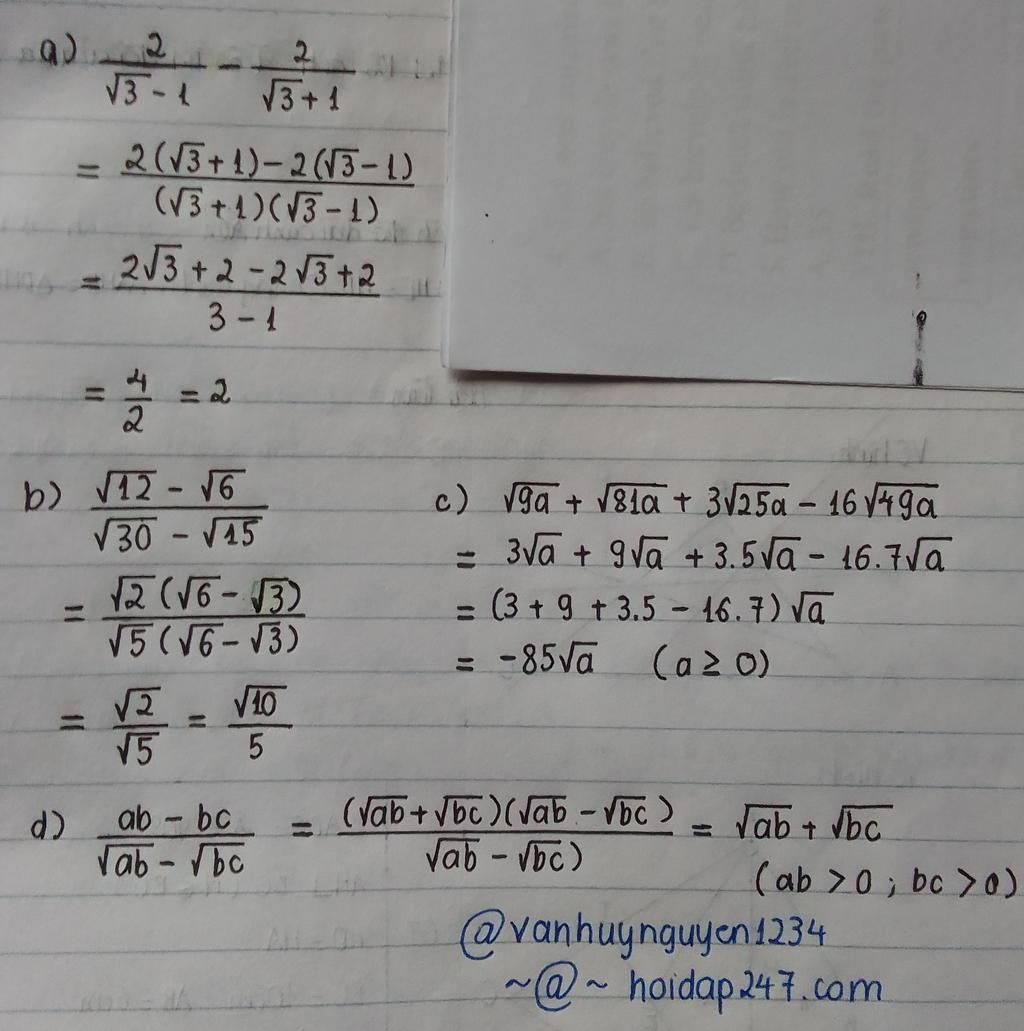 a) 2/(√3 - 1) - 2/(√3 + 1)
= (2(√3 + 1) - 2(√3 - 1))/((√3 + 1)(√3 - 1))
= (2√3 + 2 - 2√3 + 2)/(3 - 1)
= 4/2 = 2
b) (√12 - √6)/(√30 - √15)
= (√2(√6 - √3))/(√5(√6 - √3))
= √2/√5 = √10/5
c) √9a + √81a + 3√25a - 16√49a
= 3√a + 9√a + 3.5√a - 16.7√a
= (3 + 9 + 3.5 - 16.7)√a
= -85√a (a ≥ 0)
d) (ab - bc)/(√ab - √bc) = ((√ab + √bc)(√ab - √bc))/(√ab - √bc)) = √ab + √bc
(ab > 0 ; bc > 0)
@vanhuynguyen1234
~@~ hoidap247.com